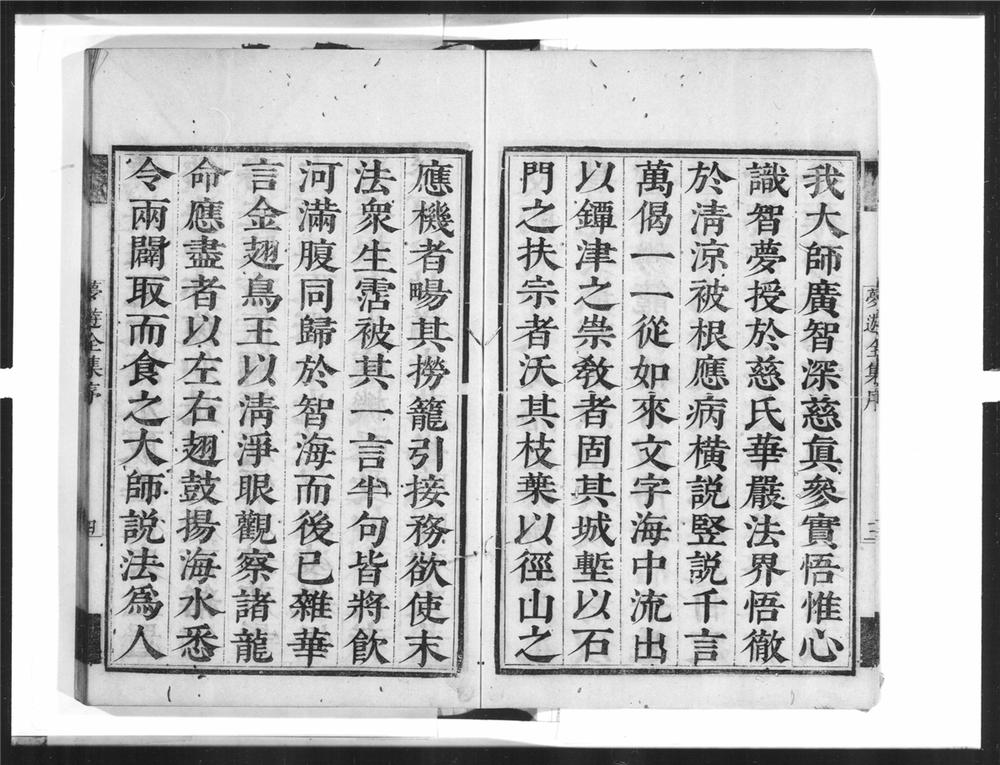 我大師廣智深慈眞參實悟惟心
識智夢授於慈氏華嚴法界悟徹
於淸涼被根應病橫説竪説千言
萬偈一一從如來文字海中流出
以鐔津之崇敎者固其城塹以石
門之扶宗者沃其枝葉以徑山之
應機者暢其撈籠引接務欲使末
法衆生霑被其一言半句皆將飮
河滿腹同歸於智海而後已雜華
言金翅鳥王以淸淨眼觀察諸龍
命應盡者以左右翅鼓揚海水悉
令兩闢取而食之大師説法爲人
夢遊全集序
三
夢遊全集序
四